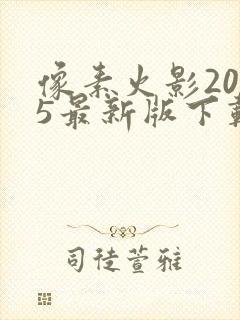 像素火影20
5最新版下载
司徒萱雅